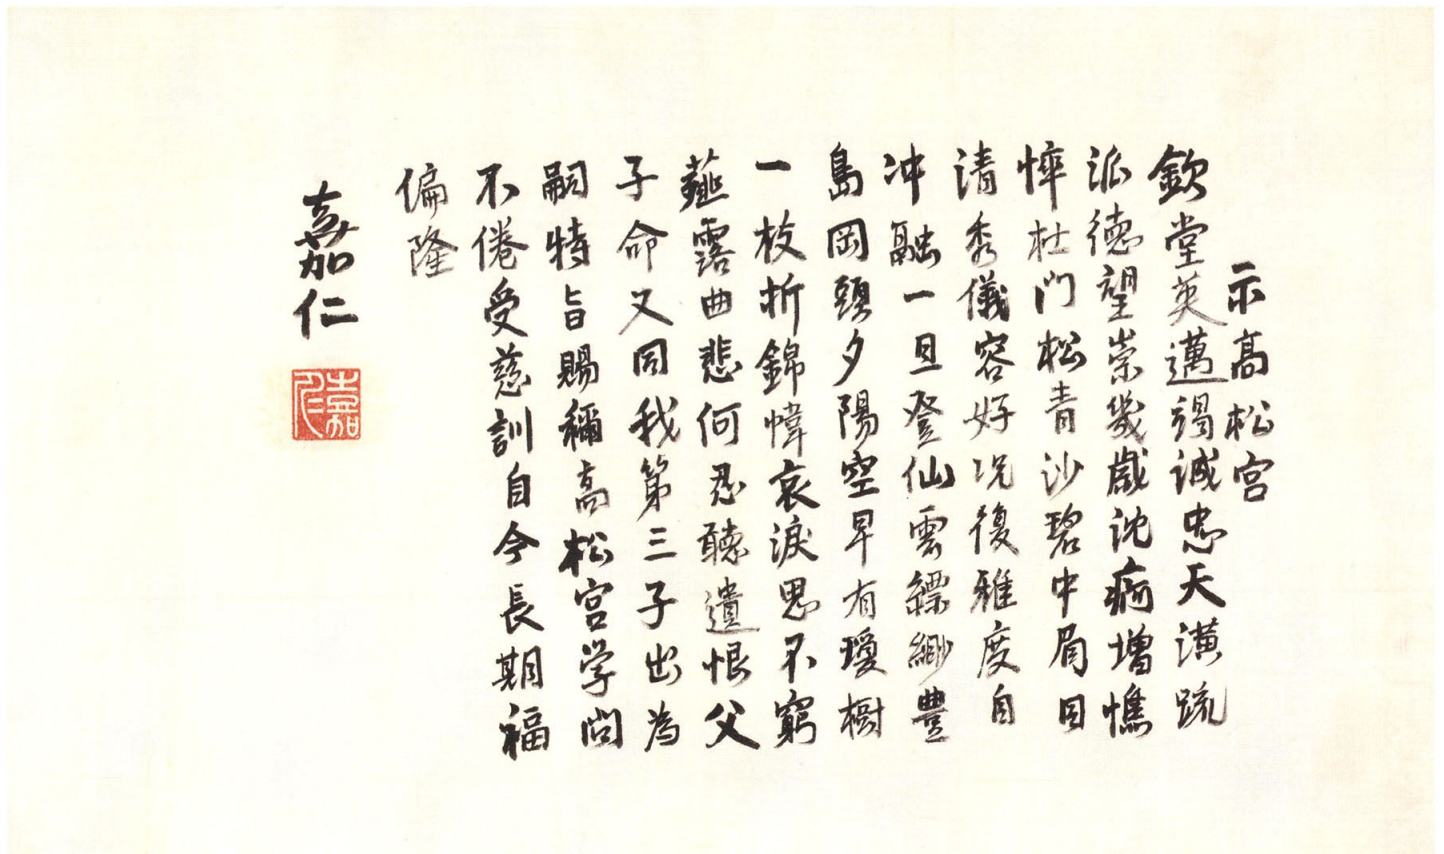 示高松宮
欽堂英邁竭誠忠天潢疏
派德望崇幾歲沈痾增憔
悴杜門松青沙碧中眉目
清秀儀容好況復雅度自
冲融一旦登仙雲縹緲豐
島岡頭夕陽空早有瓊樹
一枝折錦幃哀淚思不窮
薤露曲悲何忍聽遺恨父
子命又同我第三子出為
嗣特旨賜稱高松宮学問
不倦受慈訓自今長期福
偏隆
嘉仁
嘉仁